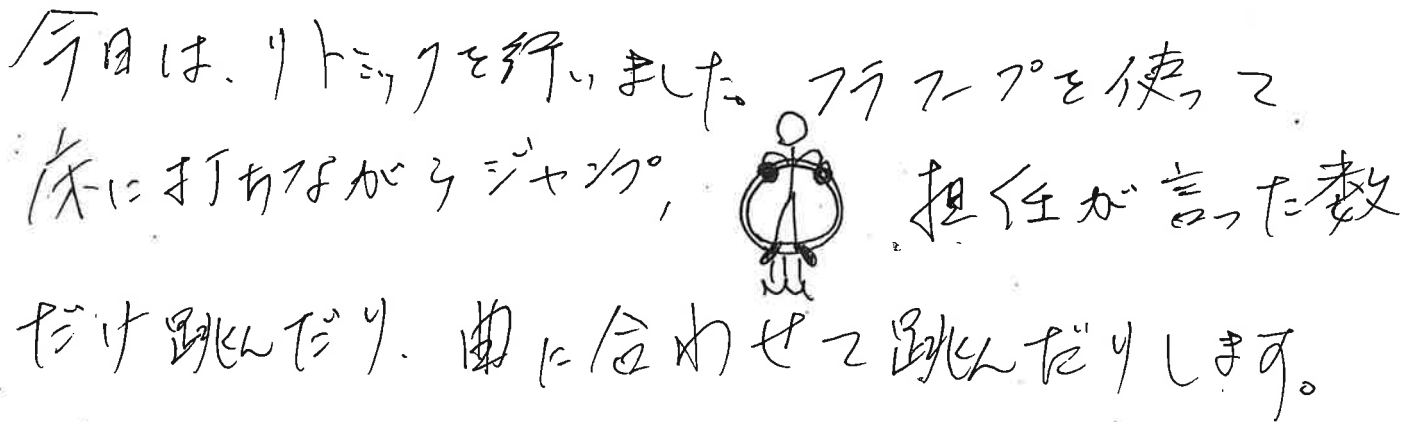 今日は、リトミックを行いました。フラフープを使って
床に打ちながらジャンプ、担任が言った数
だけ跳んだり、曲に合わせて跳んだりします。